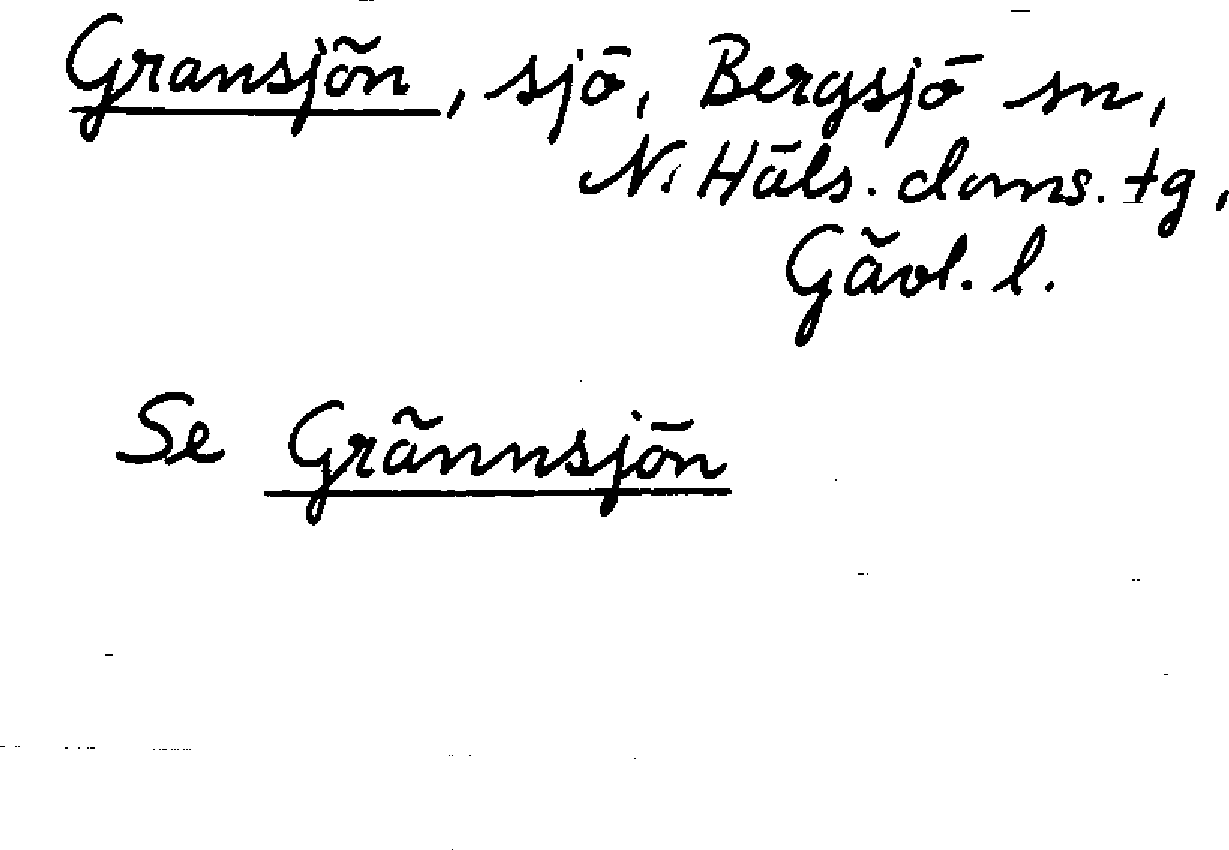 Gransjön, sjö, Bergsjö sn,
N. Häls. doms. tg,
Gävl. l.
Se Grännsjön